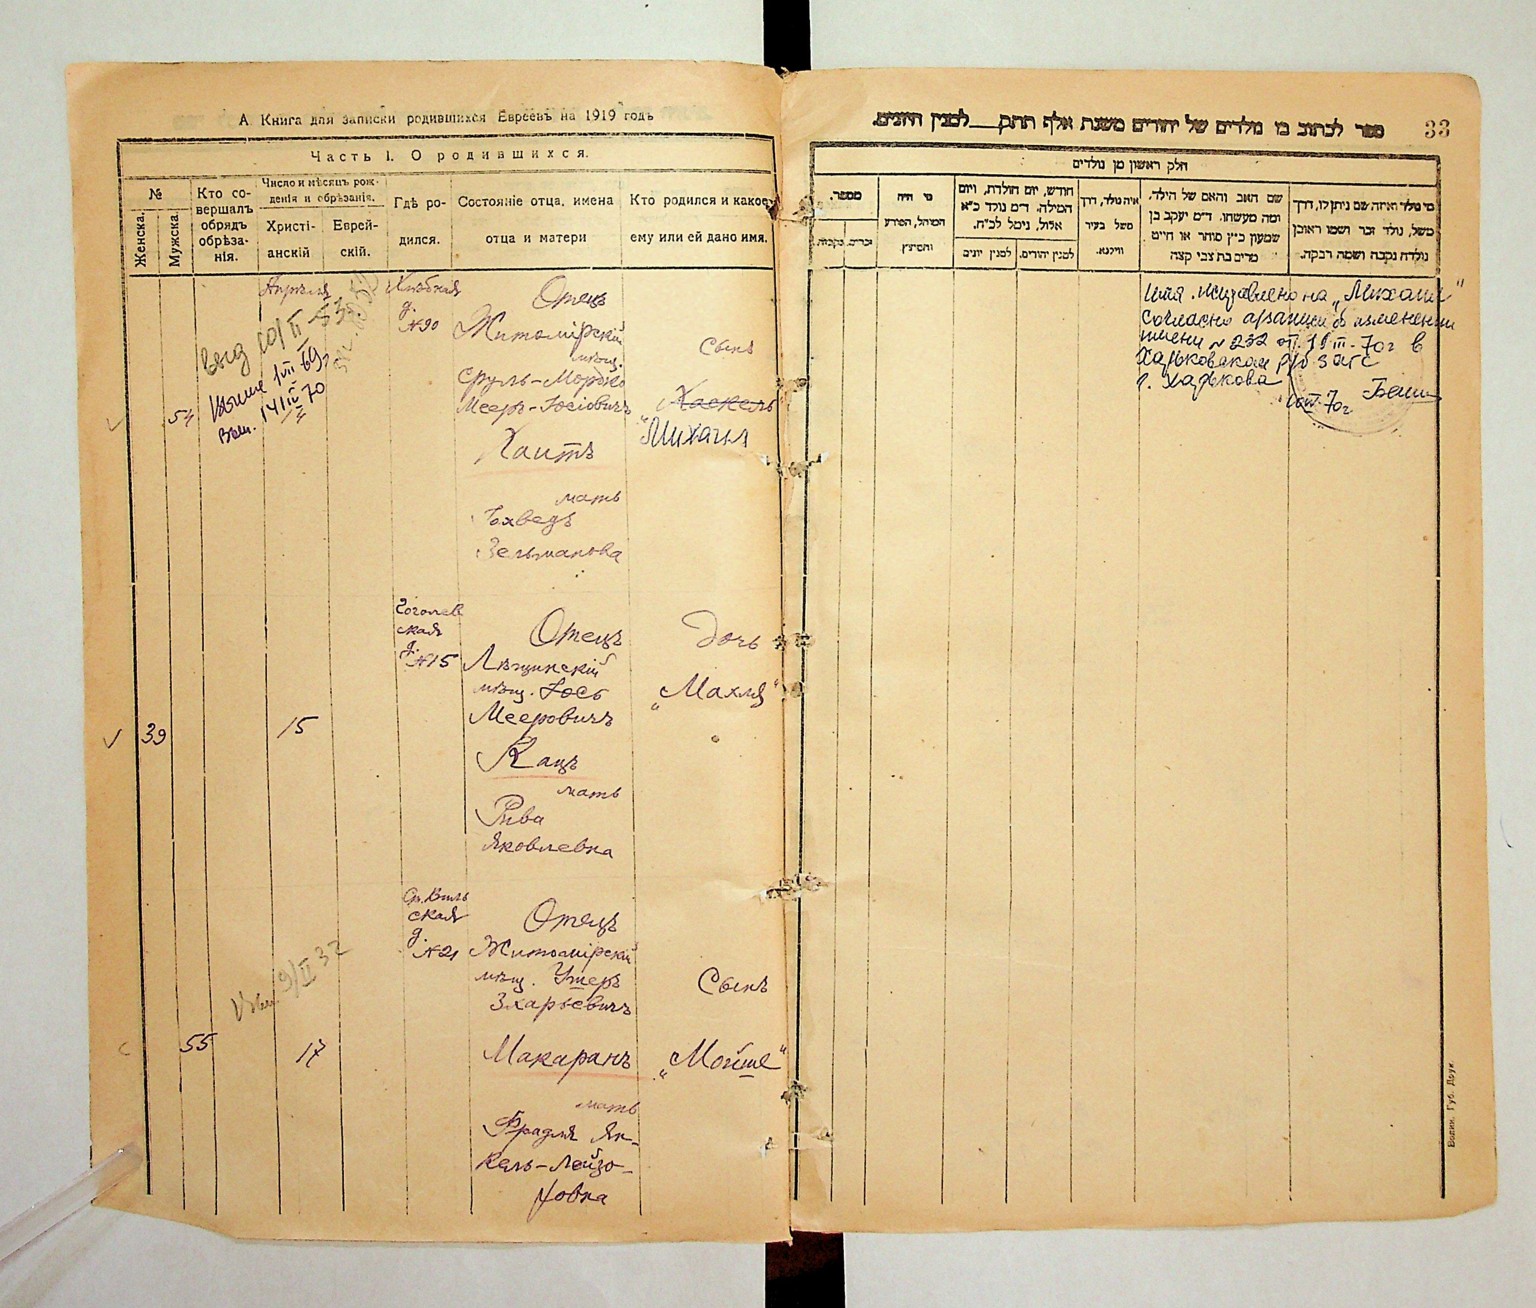 А. Книга для записки родившихся Евреевъ на 1919 годъ
Часть I. О родившихся.
№
Женска.
Мужска.
Кто со-
вершалъ
обрядъ
обрѣза-
нія.
Число и мѣсяцъ рож-
денія и обрѣзанія.
Христі-
анскій
Еврей-
скій.
Гдѣ ро-
дился.
Состояніе отца, имена
отца и матери
Кто родился и какое
ему или ей дано имя.
54
Апрѣля
Выд 10/II-53
1/VII 69г
14/IV 70
Хлѣбная
д.
№90
Отецъ
Житомірскій
мѣщ.
Сруль-Мордко
Мееръ-Іосіовичъ
Хаитъ
мать
Бхведъ
Зельманова
Сынъ
„Хаскель
„Михаил
39
15
Гоголев
ская
д.
№15
Отецъ
Лѣщинскій
мѣщ. Іось
Мееровичъ
Кацъ
мать
Рива
Яковлевна
Дочь
„Махля“
55
9/II 32
17
Ср. Виль
ская
д.
№21
Отецъ
Житомірскій
мѣщ. Умеръ
Зхарьевичъ
Макаранъ
мать
Фрадля Ян-
кель-Лейзо-
ровна
Сынъ
„Мойше“
ספר לכתוב בו נולדים של יהודים משנת אלף תתק___ למנין היונים.
33
חלק ראשון מן נולדים
מספר.
זכרים.
נקבות.
מי היה
המוהל, הפורע
והמוצץ
חודש, יום הולדת, ויום
המילה. ד״מ נולד כ״א
אלול, נימול לכ״ח.
למנין יונים
למנין יהודים.
איה נולד, דרך
משל בעיר
ווילנא.
שם האב והאם של הילד,
ומה מעשהו. ד״מ יעקב בן
שמעון כ״ץ סוחר או חייט
מרים בת צבי קצה
מי נולד ואיזה שם ניתן לו, דרך
משל, נולד זכר ושמו ראובן
נולדה נקבה ושמה רבקה.
Имя исправлено на „Михаил“
согласно об изменении
имени №232 от 19 III-70г в
Харьковском р/б загс
г. Харькова
III-70г
Волин. Губ. Друк